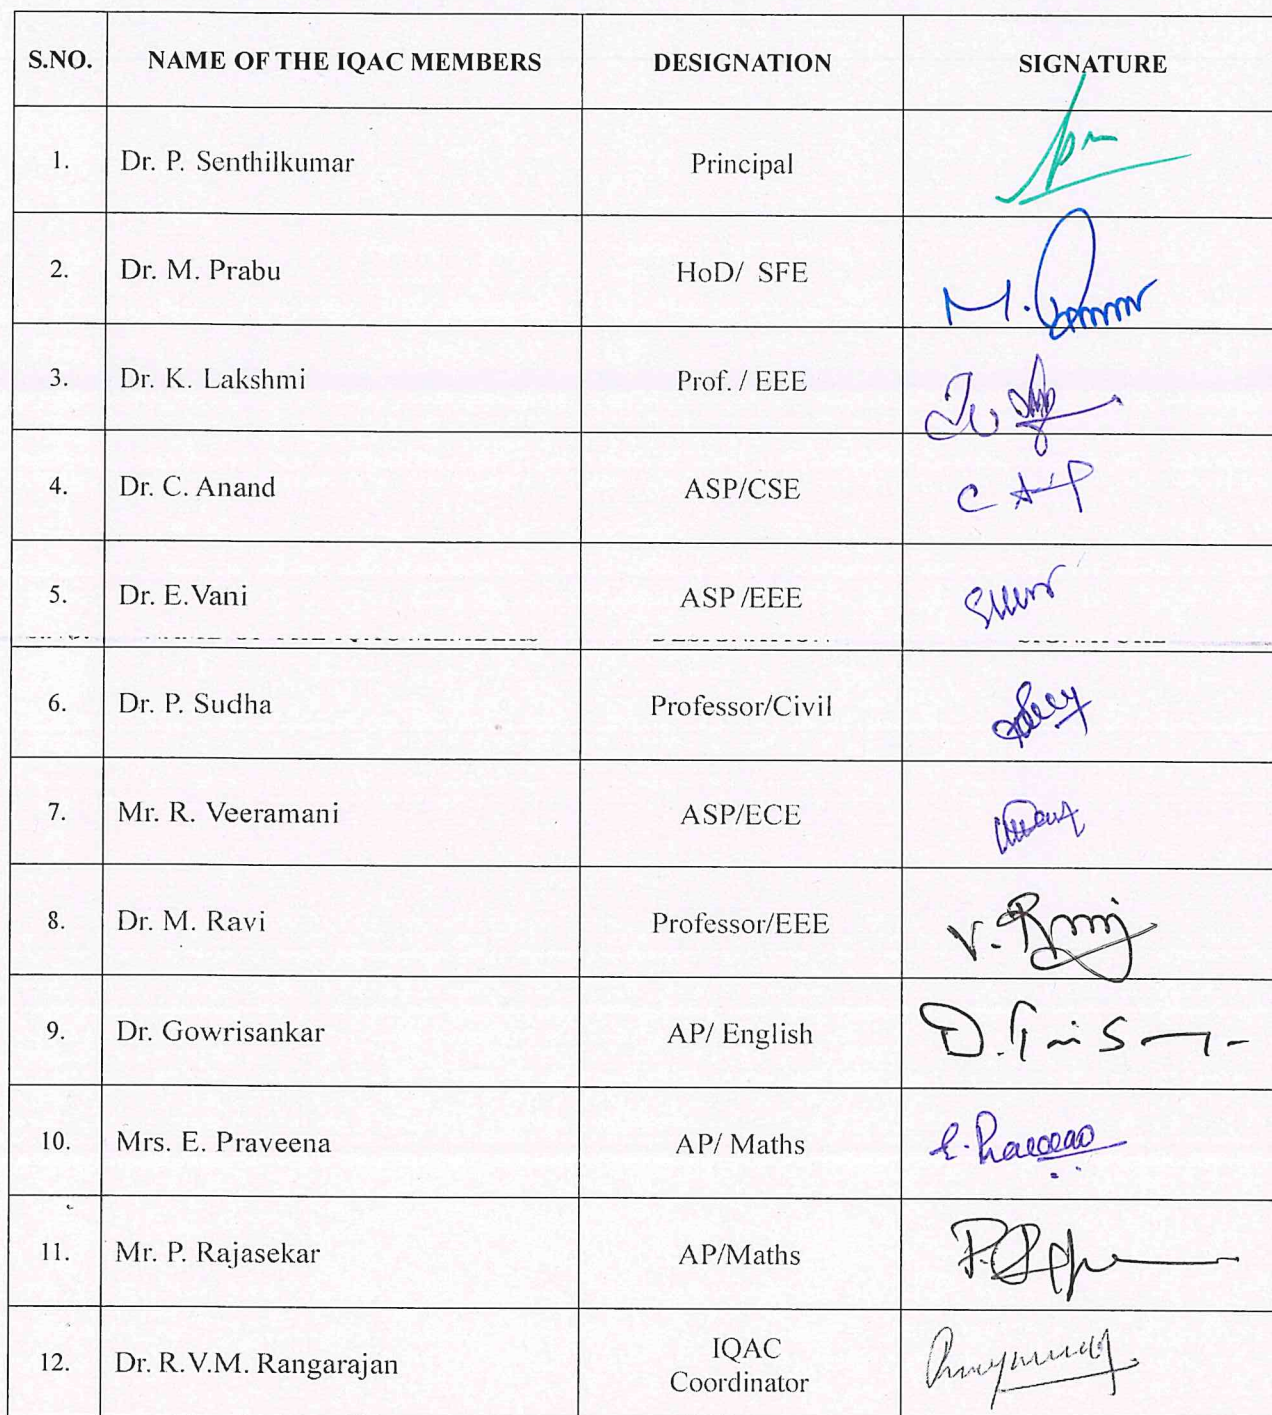 S.NO. NAME OF THE IQAC MEMBERS DESIGNATION SIGNATURE
1. Dr. P. Senthilkumar Principal
2. Dr. M. Prabu HoD/ SFE M.
3. Dr. K. Lakshmi Prof. / EEE
4. Dr. C. Anand ASP/CSE C
5. Dr. E.Vani ASP /EEE
NAME OF THE IQAC MEMBERS DESIGNATION SIGNATURE
6. Dr. P. Sudha Professor/Civil
7. Mr. R. Veeramani ASP/ECE
8. Dr. M. Ravi Professor/EEE V.
9. Dr. Gowrisankar AP/ English D.
10. Mrs. E. Praveena AP/ Maths E.
11. Mr. P. Rajasekar AP/Maths P.
12. Dr. R.V.M. Rangarajan IQAC
Coordinator